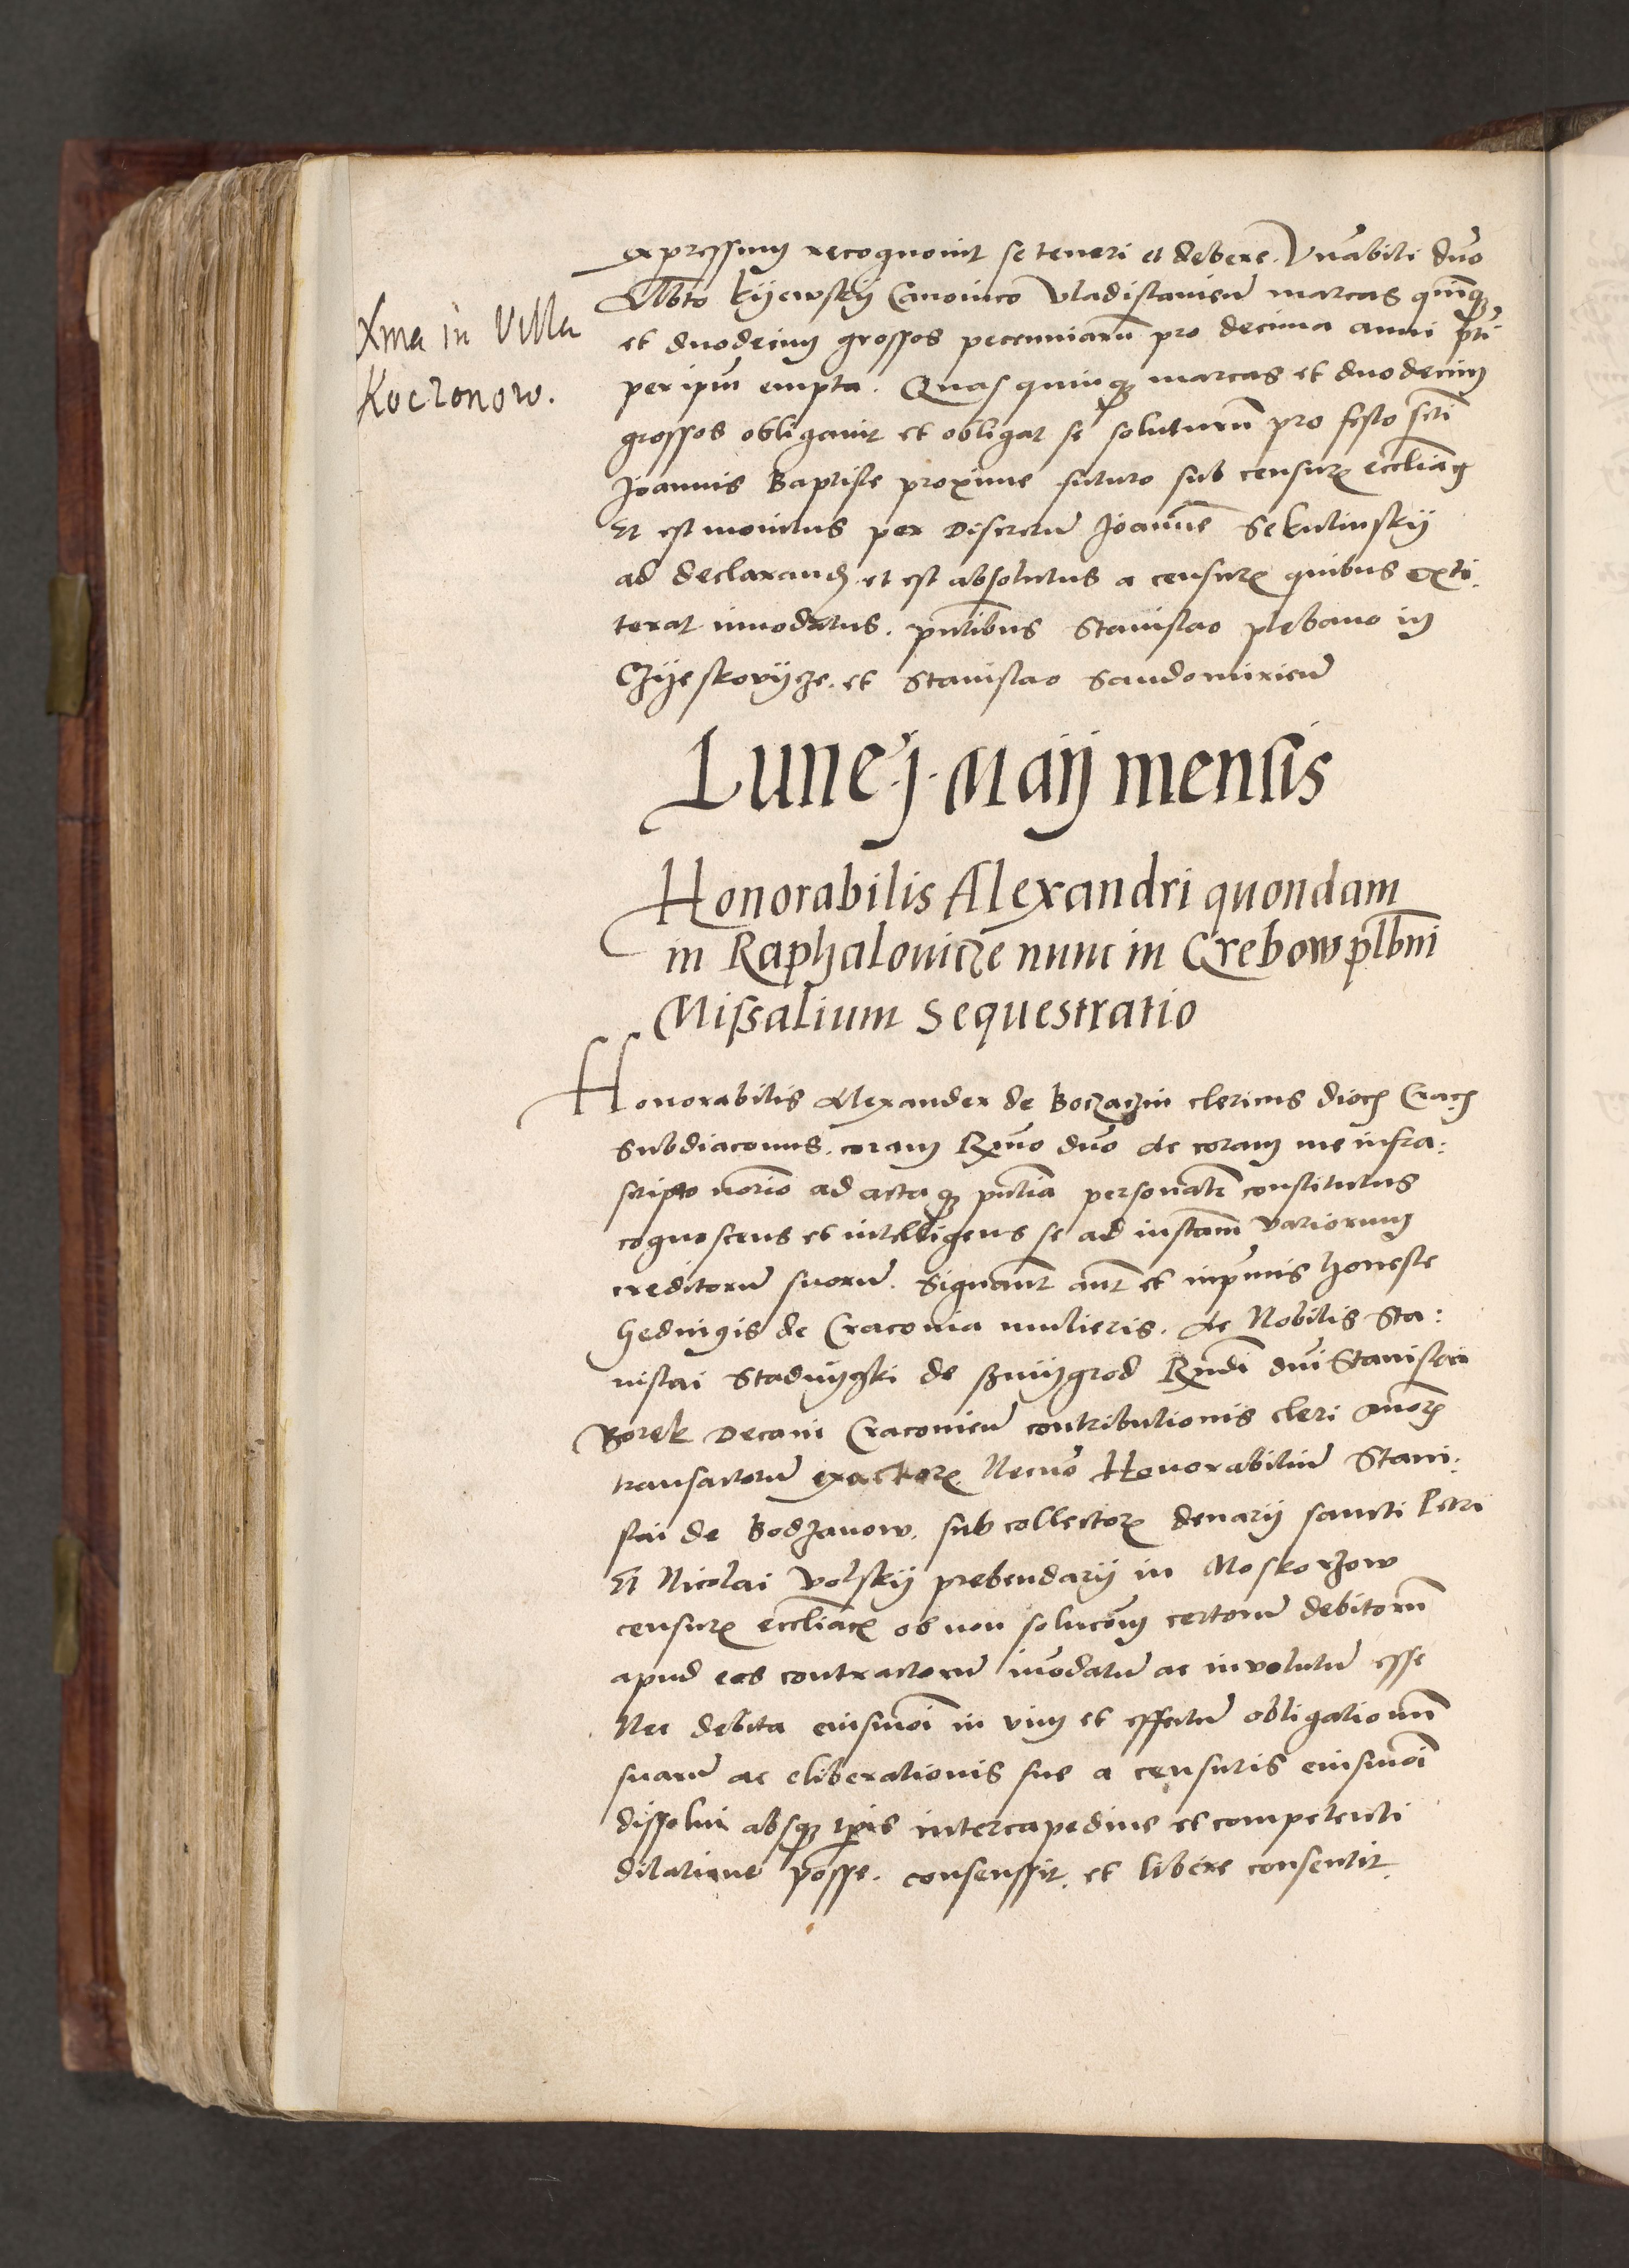 expressum recognovit se teneri et debere Vnabili dno
Albto kyewsky Canonico Vladislavien marcas quinq
Xma in Villa
Koczonow.
et duodecim grossos pecunniarū pro decima anni pnti
per ipm empta. Quas quinq marcas et duodecim
grossos obligavit et obligat se soluturū pro festo scti
Joannis Baptiste proxime futuro sub censur eccliac
Et est monitus per Discretū Joannē Sekulinsky
ad declarand et est absolutus a censur quibus exti-
terat innodatus. pntibus Stanislao plebano in
et Stanislao Sandomirien
Lune j Maij mensis
Honorabilis Alexandri quondam
in Raphalovicze nunc in Grebow plbni
Missalium Sequestratio
Honorabilis Alexander de Boczaczin clericus dioc Crac
Subdiaconus. coram Rmo dno ac coram me infra:
scripto norio ad actaq pntia personalr constitutus
cognoscens et intelligens se ad instam variorum
creditorū suorū. Signant aut et inprimis honeste
hedwigis de Cracovia mulieris. ac Nobilis Sta:
nislai Stadnyczki de szmygrod Rndi dni Stanislai
Borek Decani Cracovien contributionis cleri annor
transactorū exactor. Necno Honorabiliū Stani:
slai de Bodzanow. sub collector denarij sancti Petri
Et Nicolai Volsky prebendarij in Moskorzow
censur eccliac ob non soluconem certorū debitorū
apud eos contractorū innodatū ac involutū esse
Nec debita eiusmoi in vim et effectū obligationū
suarū ac eliberationis sue a censuris eiusmoi
dissolui absq tpis intercapedine et competenti
dilatione posse. consenssit. et libere consentit.